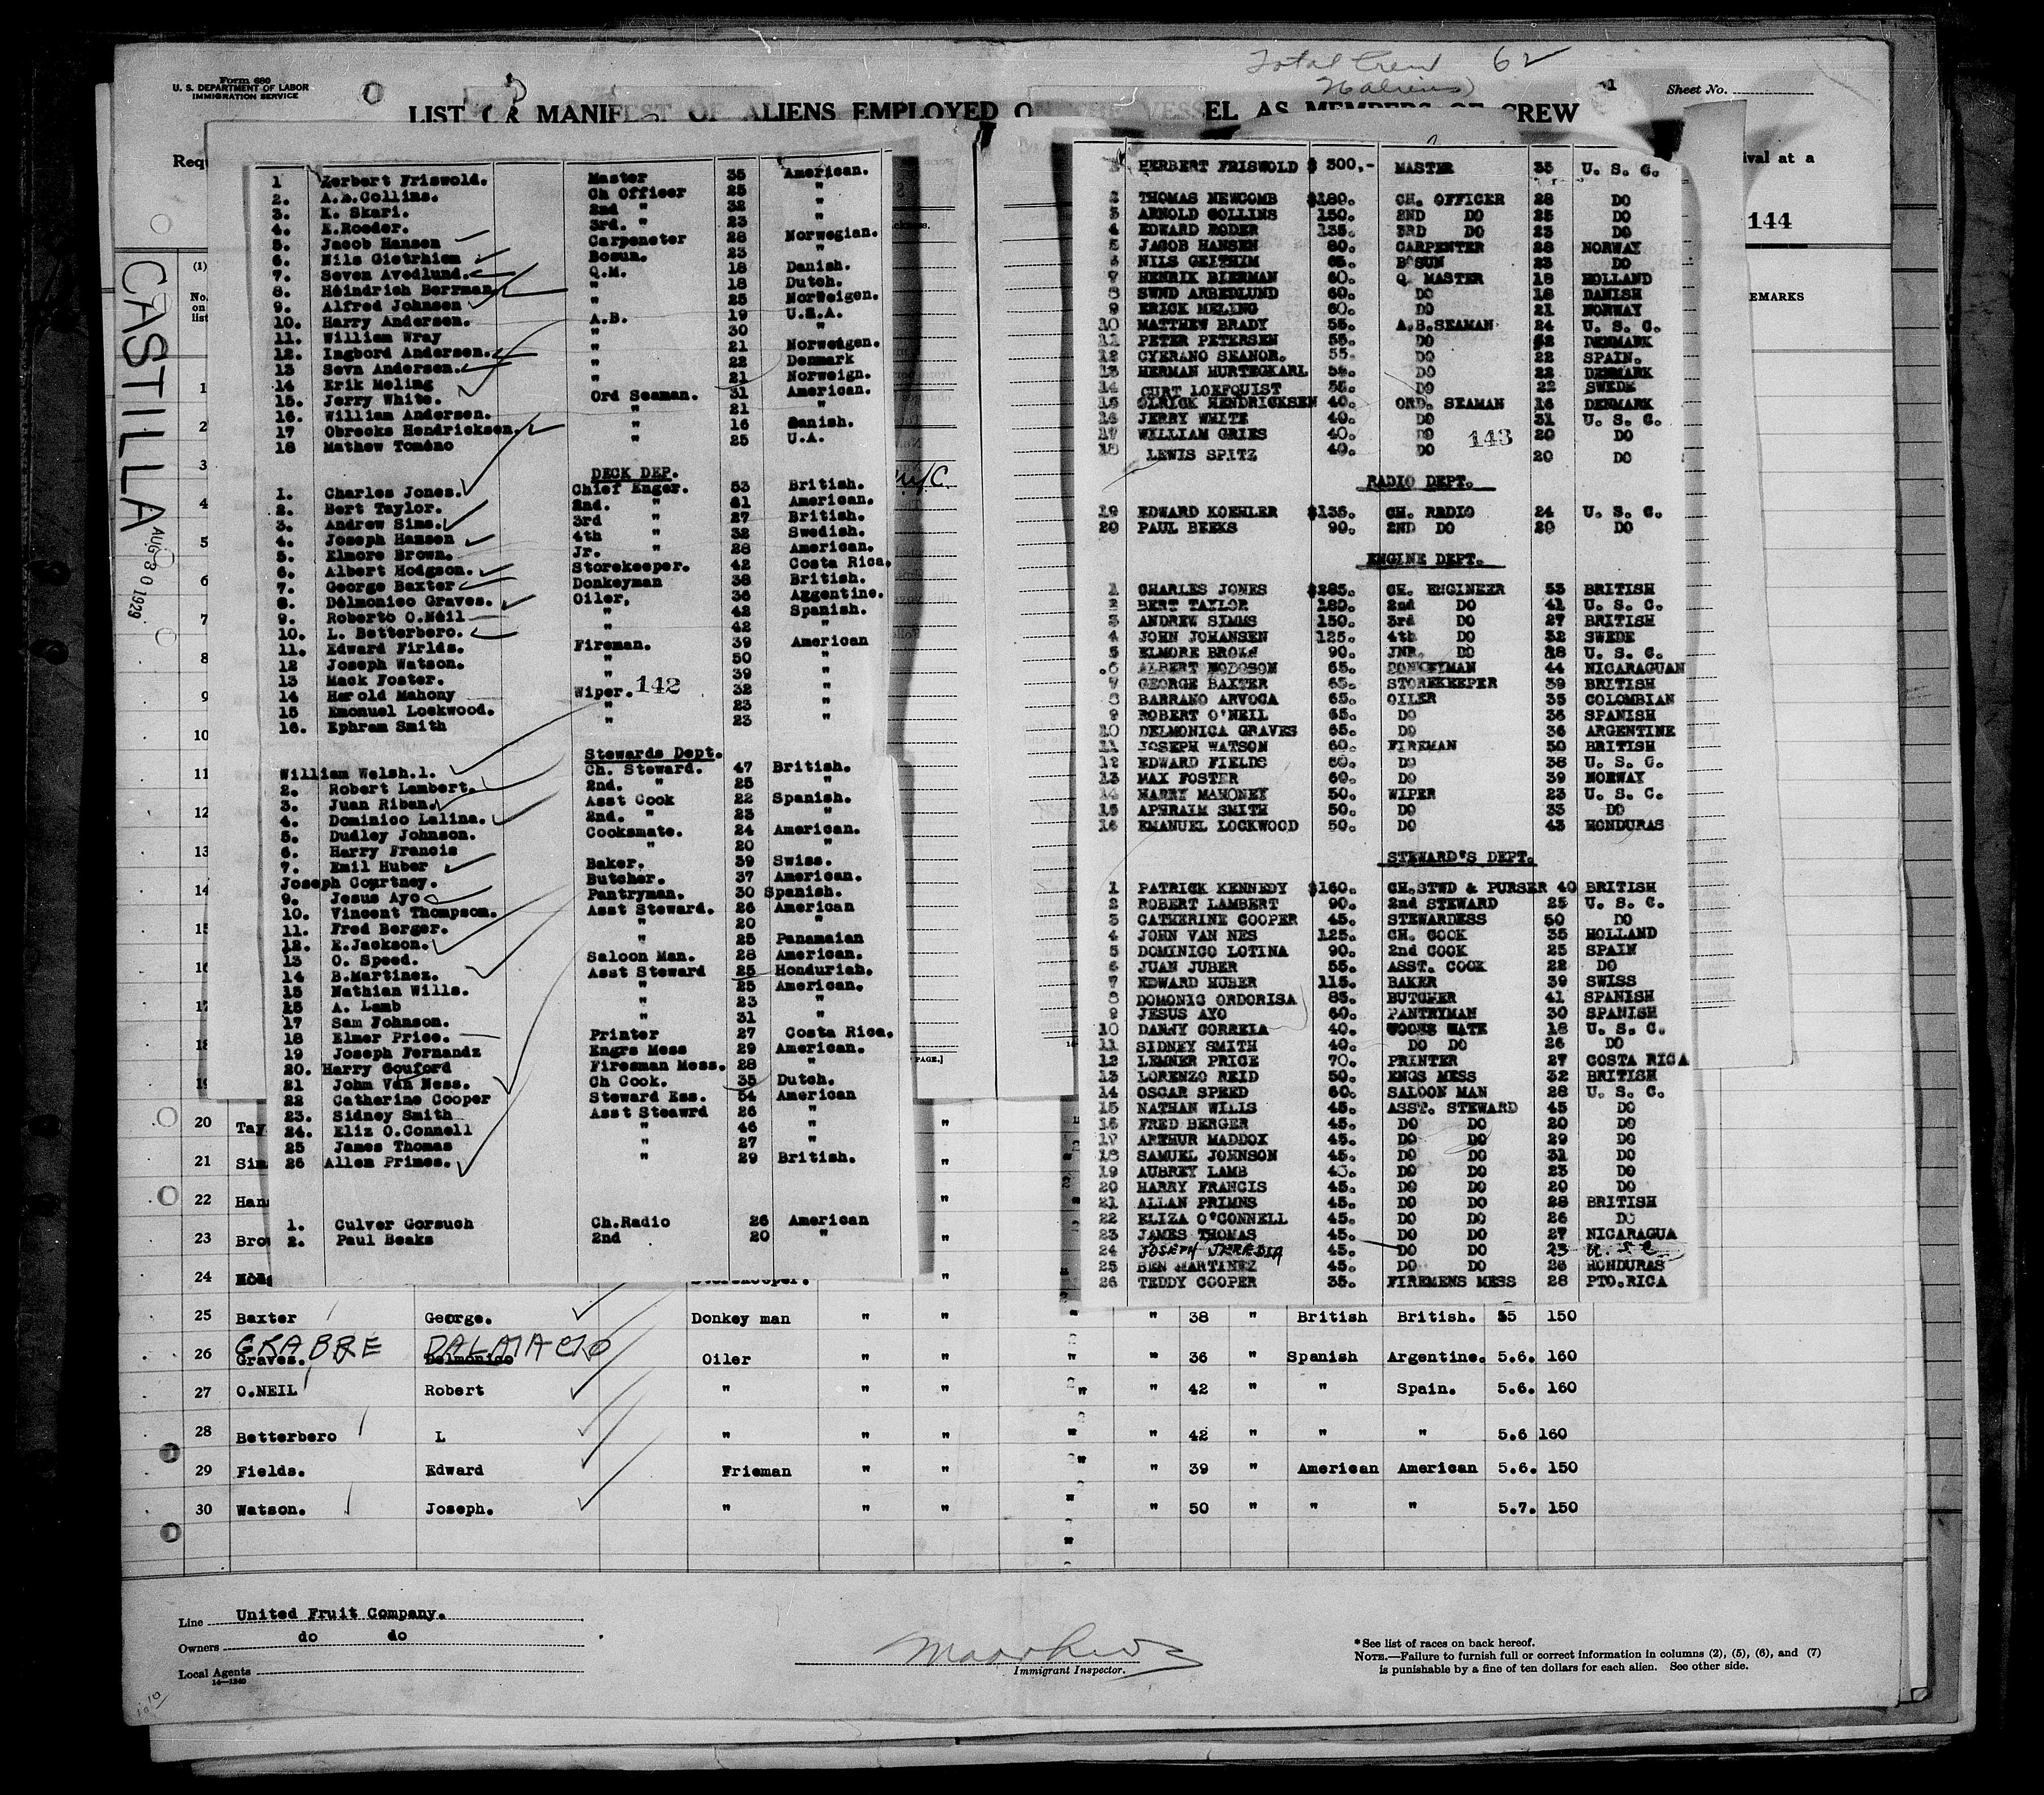 Form 680
U. S. DEPARTMENT OF LABOR
IMMIGRATION SERVICE
Total Crew 62
Sheet No.
LIST OR MANIFEST OF ALIENS EMPLOYED ON THE VESSEL AS MEMBERS OF CREW
Requ
ival at a
144
EMARKS
CASTILLA
AUG 30 1929
(1)
No. on list
1 Herbert Friswold. Master 35 American.
2. A.B.Collins. Ch Officer 25 "
3. K. Skari. 2nd " 32 "
4. E.Roeder. 3rd. " 23 "
5. Jacob Hansen Carpeneter 28 Norwegian.
6. Nils Gietrhiem Bosun. 23 "
7. Seven Avedlund. Q.M. 18 Danish.
8. Heindrich Berrman " 18 Dutch.
9. Alfred Johnsen " 25 Norweigen.
10. Harry Andersen. A.B. 19 U.S.A.
11. William Wray " 30 "
12. Ingbord Andersen. " 21 Norweigen.
13 Sevn Andersen. " 22 Denmark
14 Erik Meling " 21 Norweign.
15. Jerry White. Ord Seaman. 31 American.
16. William Andersen. " 21 "
17 Obrecks Hendricksen. " 16 Danish.
18 Mathew Tomeno " 25 U.A.
DECK DEP.
1. Charles Jones. Chief Enger. 53 British.
2. Bert Taylor. 2nd. " 41 American.
3. Andrew Sims. 3rd " 27 British.
4. Joseph Hansen 4th " 32 Swedish.
5. Elmore Brown. Jr. " 28 American.
6. Albert Hodgson. Storekeeper. 42 Costa Rica.
7. George Baxter Donkeyman 38 British.
8. Delmonico Graves. Oiler, 36 Argentine.
9. Roberto O.Neil " 42 Spanish.
10. L. Betterbero. " 42 "
11. Edward Firlds. Fireman. 39 American
12 Joseph Watson. " 50 "
13 Mack Foster. " 39 "
14 Harold Mahony Wiper. 142 32 "
15 Emonuel Lockwood. " 23 "
16. Ephram Smith " 23 "
Stewards Dept.
William Welsh.1. Ch. Steward. 47 British.
2. Robert Lambert. 2nd. " 25 "
3. Juan Riban. Asst Cook 22 Spanish.
4. Dominico Lalina. 2nd. " 23 "
5. Dudley Johnson. Cooksmate. 24 American.
6. Harry Francis " 20 "
7. Emil Huber Baker. 39 Swiss.
Joseph Courtney. Butcher. 37 American.
9. Jesus Ayo Pantryman. 30 Spanish.
10. Vincent Thompson. Asst Steward. 26 American
11. Fred Berger. " 20 "
12. E.Jackson. " 25 Panamaian
13 O. Speed. Saloon Man. 28 American.
14 B.Martinez. Asst Steward 25 Honduriah.
15 Nathian Wills. " 25 American.
16 A. Lamb " 23 "
17 Sam Johnson. " 31 "
18 Elmer Price. Printer 27 Costa Rica.
19 Joseph Fernandz Engrs Mess 29 American.
20. Harry Gouford Firesman Mess. 28 "
21 John Van Ness. Ch Cook. 35 Dutch.
22 Catherine Cooper Steward Ess. 54 American
23. Sidney Smith Asst Steawrd 26 "
24. Eliz O.Connell " 46 "
25 James Thomas " 27 "
26 Allen Primes. " 29 British.
1. Culver Gorsuch Ch.Radio 26 American
2. Paul Beaks 2nd 20 "
HERBERT FRISWOLD $ 300,- MASTER 35 U. S. C.
2 THOMAS NEWCOMB $180. CH. OFFICER 28 DO
3 ARNOLD COLLINS 150. 2ND DO 25 DO
4 EDWARD RODER 135. 3RD DO 23 DO
5 JACOB HANSEN 80. CARPENTER 28 NORWAY
6 NILS GEITHIM 65. BOSUN 23 DO
7 HENRIK BIERMAN 60. Q. MASTER 18 HOLLAND
8 SWND ARBEDLUND 60. DO 18 DANISH
9 ERICK MELING 60. DO 21 NORWAY
10 MATTHEW BRADY 55. A.B.SEAMAN 24 U. S. C.
11 PETER PETERSEN 55. DO 32 DENMARK
12 CYERANO SEANOR. 55. DO 22 SPAIN.
13 HERMAN HURTEGKARL 55. DO 22 DENMARK
14 CURT LOEFQUIST 55. DO 22 SWEDE
15 OLRICK HENDRICKSEN 40. ORD. SEAMAN 16 DENMARK
16 JERRY WHITE 40. DO 31 U. S. C.
17 WILLIAM GRIES 40. DO 143 20 DO
18 LEWIS SPITZ 40. DO 20 DO
RADIO DEPT.
19 EDWARD KOEHLER $135. CH. RADIO 24 U. S. C.
20 PAUL BEEKS 90. 2ND DO 20 DO
ENGINE DEPT.
1 CHARLES JONES $285. CH. ENGINEER 53 BRITISH
2 BERT TAYLOR 180. 2nd DO 41 U. S. C.
3 ANDREW SIMMS 150. 3rd DO 27 BRITISH
4 JOHN JOHANSEN 125. 4th DO 32 SWEDE
5 ELMORE BROWN 90. JNR. DO 28 U. S. C.
6 ALBERT HODGSON 65. DONKEYMAN 44 NICARAGUAN
7 GEORGE BAXTER 65. STOREKEEPER 39 BRITISH
8 BARRANO ARVOCA 65. OILER 35 COLOMBIAN
9 ROBERT O'NEIL 65. DO 36 SPANISH
10 DELMONICA GRAVES 65. DO 36 ARGENTINE
11 JOSEPH WATSON 60. FIREMAN 50 BRITISH
12 EDWARD FIELDS 60. DO 38 U. S. C.
13 MAX FOSTER 60. DO 39 NORWAY
14 HARRY MAHONEY 50. WIPER 23 U. S. C.
15 APHRAIM SMITH 50. DO 33 DO
16 EMANUEL LOCKWOOD 50. DO 43 HONDURAS
STEWARD'S DEPT.
1 PATRICK KENNEDY $160. CH.STWD & PURSER 40 BRITISH
2 ROBERT LAMBERT 90. 2nd STEWARD 25 U. S. C.
3 CATHERINE COOPER 45. STEWARDESS 50 DO
4 JOHN VAN NES 125. CH. COOK 35 HOLLAND
5 DOMINICO LOTINA 90. 2nd COOK 25 SPAIN
6 JUAN JUBER 55. ASST. COOK 22 DO
7 EDWARD HUBER 115. BAKER 39 SWISS
8 DOMONIC ORDORISA 85. BUTCHER 41 SPANISH
9 JESUS AYO 60. PANTRYMAN 30 SPANISH
10 DANNY CORREIA 40. COOKS MATE 18 U. S. C.
11 SIDNEY SMITH 40. DO DO 26 DO
12 LEMNER PRICE 70. PRINTER 27 COSTA RICA
13 LORENZO REID 50. ENGS MESS 32 BRITISH
14 OSCAR SPEED 60. SALOON MAN 28 U. S. C.
15 NATHAN WILLS 45. ASST. STEWARD 45 DO
16 FRED BERGER 45. DO DO 20 DO
17 ARTHUR MADDOX 45. DO DO 29 DO
18 SAMUEL JOHNSON 45. DO DO 31 DO
19 AUBREY LAMB 45. DO DO 23 DO
20 HARRY FRANCIS 45. DO DO 20 DO
21 ALLAN PRIMNS 45. DO DO 28 BRITISH
22 ELIZA O'CONNELL 45. DO DO 26 DO
23 JAMES THOMAS 45. DO DO 27 NICARAGUA
24 JOSEPH 45. DO DO 23 U.S.C
25 BEN MARTINEZ 45. DO DO 26 HONDURAS
26 TEDDY COOPER 35. FIREMENS MESS 28 PTO.RICA
1
2
3
4
5
6
7
8
9
10
11
12
13
14
15
16
17
18
19
PAGE.]
20 Tay "
21 Sim "
22 Han "
23 Bro "
24 Hodg Storekeeper. "
25 Baxter George. Donkey man " " " " 38 " British British. 55 150
GRABRE DALMACIO
26 Graves. Delmonico Oiler " " " " 36 " Spanish Argentine. 5.6. 160
27 O.NEIL Robert " " " " " 42 " " Spain. 5.6. 160
28 Betterbero L " " " " " 42 " " " 5.6 160
29 Fields. Edward Frieman " " " " 39 " American American 5.6. 150
30 Watson. Joseph. " " " " " 50 " " " 5.7. 150
Line United Fruit Company.
Owners do do
Local Agents
14—1240
Immigrant Inspector.
* See list of races on back hereof.
NOTE.—Failure to furnish full or correct information in columns (2), (5), (6), and (7)
is punishable by a fine of ten dollars for each alien. See other side.